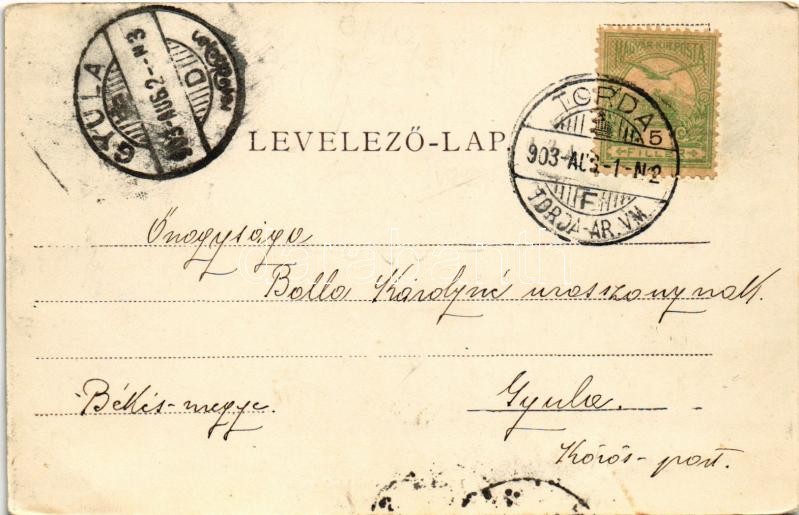 GYULA
903-AUG.2.-N3
D
MAGYAR KIR. POSTA
5
FILLÉR
TORDA
903-AUG.-1-N2
F
TORDA-AR.VM.
LEVELEZŐ-LAP.
Őnagysága
Balla Károlyné urasszonynak.
Békés-megye.
Gyula.
Körös-part.